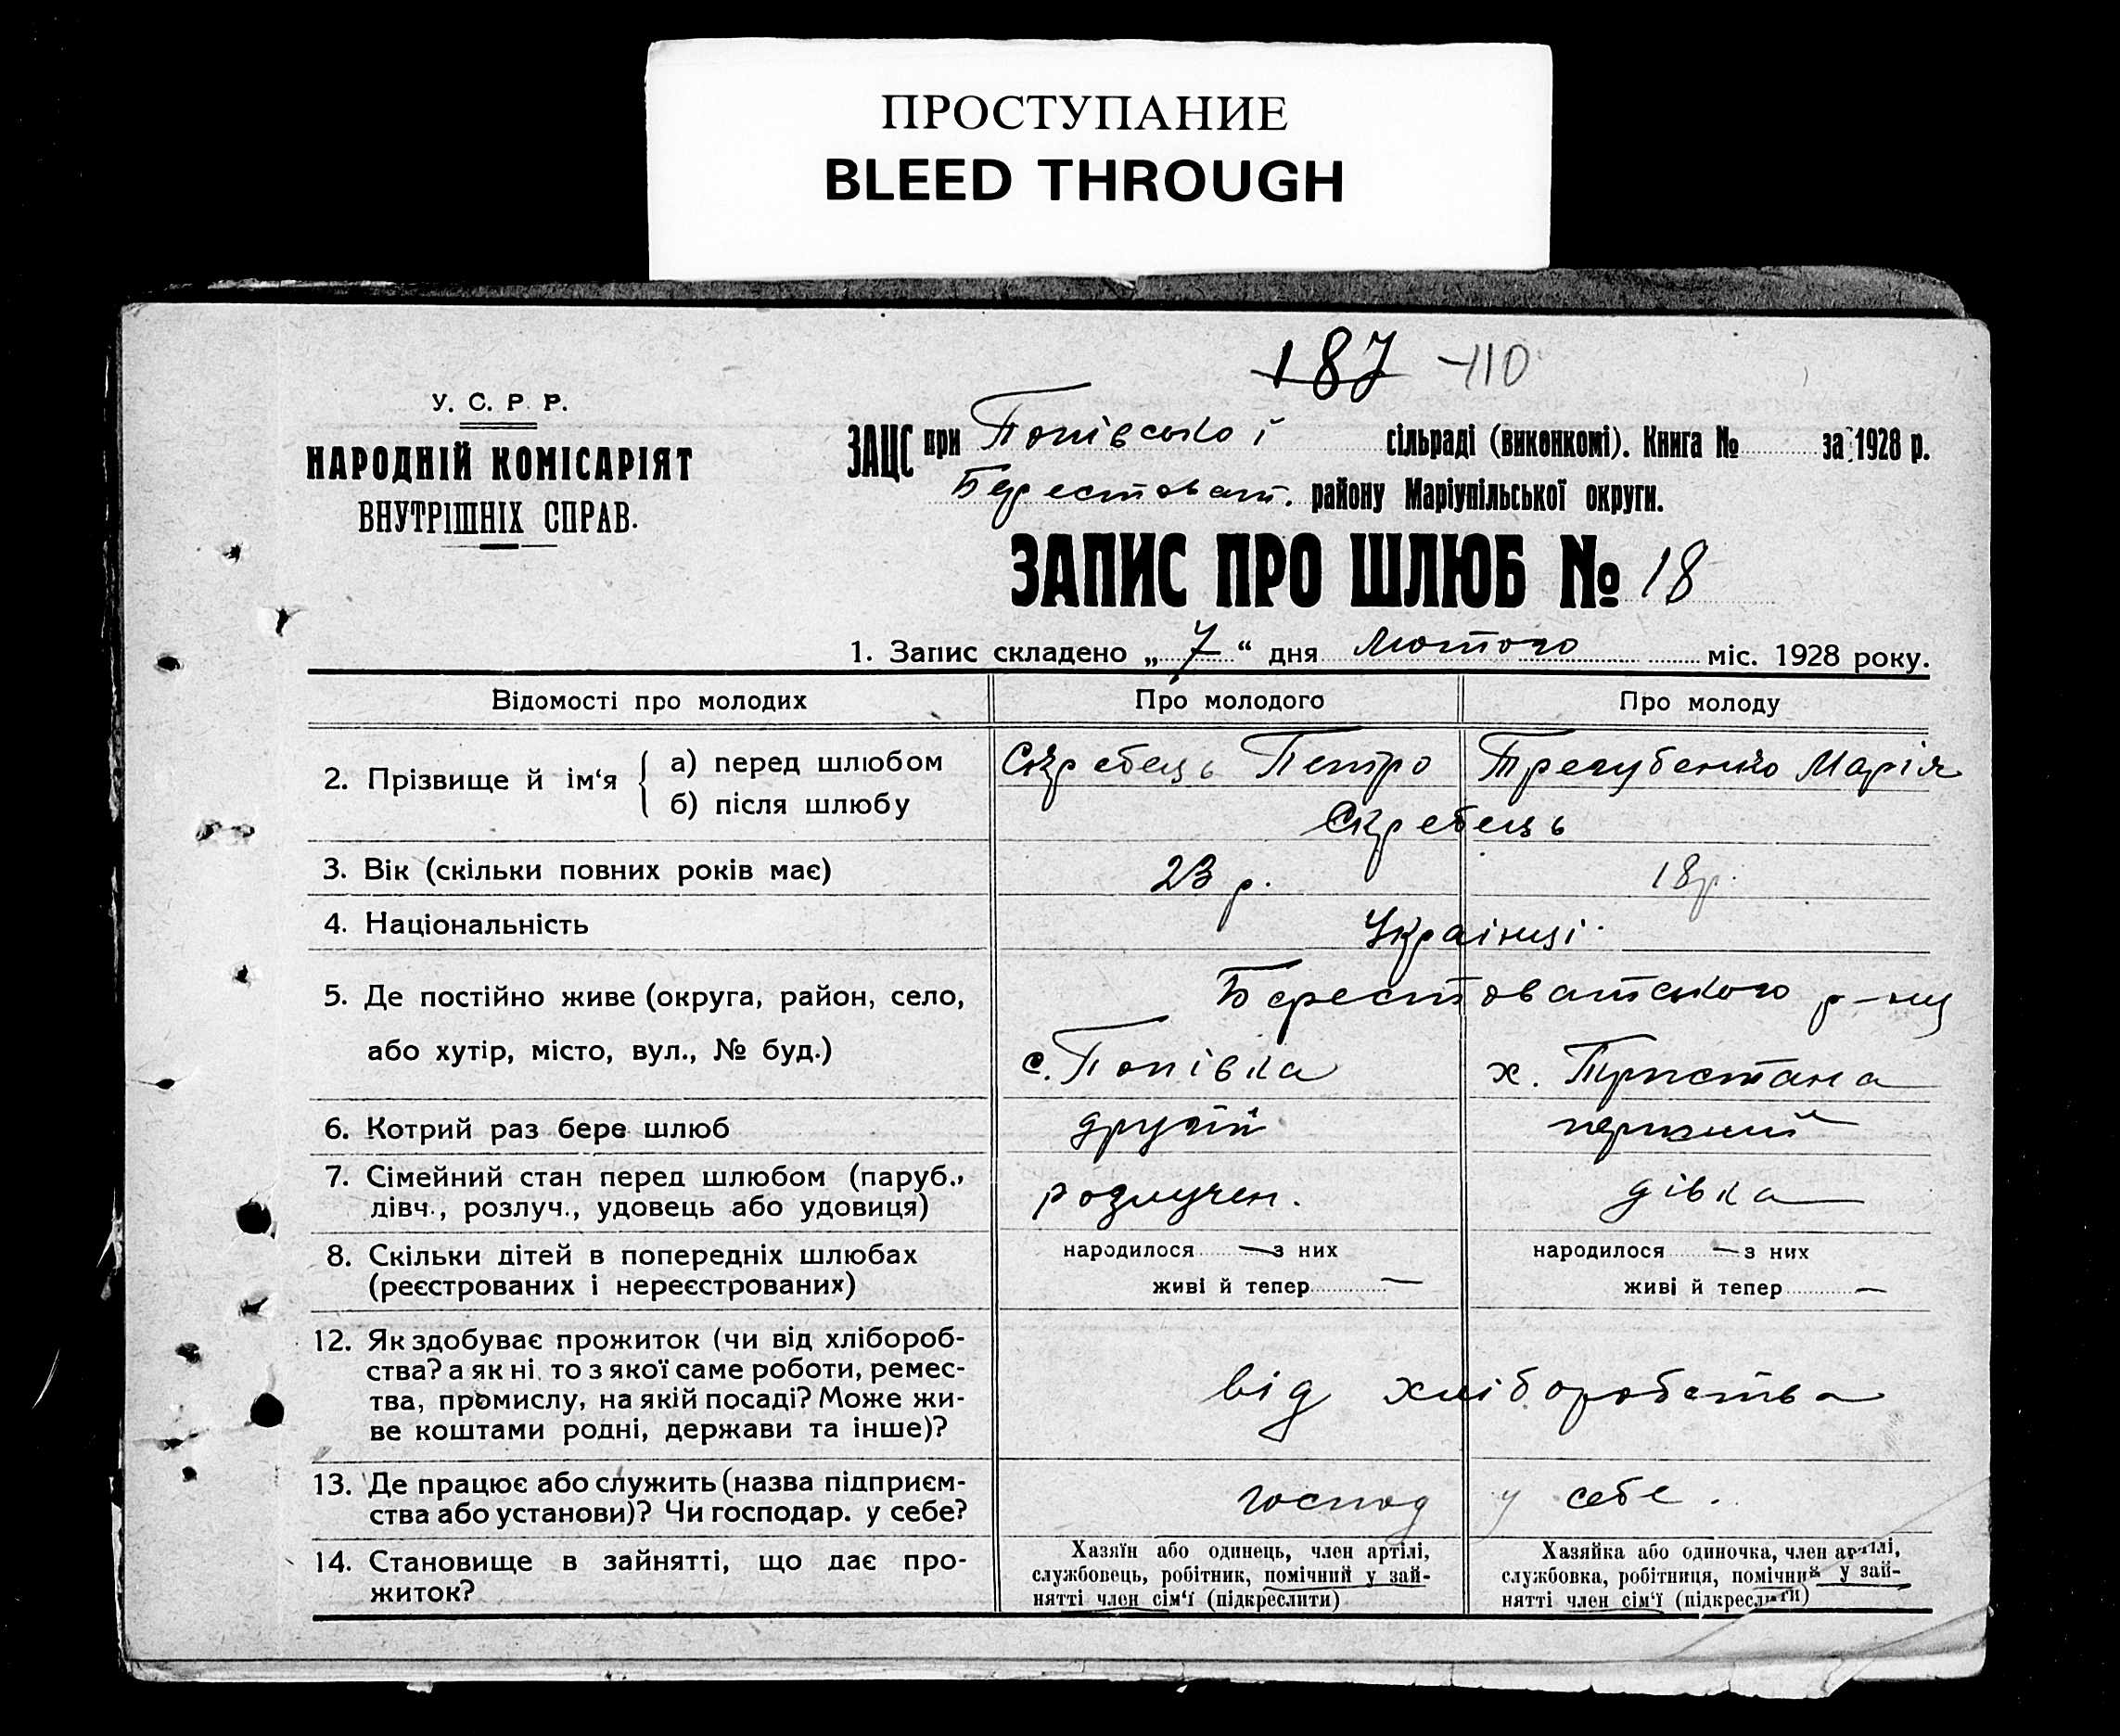 ПРОСТУПАНИЕ
BLEED THROUGH
187 110
У. С. Р. Р.
НАРОДНІЙ КОМІСАРІЯТ
ВНУТРІШНІХ СПРАВ.
ЗАЦС при Попівської сільраді (виконкомі). Книга № за 1928 р.
Берестоват. району Маріупільської округи.
ЗАПИС ПРО ШЛЮБ № 18
1. Запис складено „7“ дня Лютого міс. 1928 року.
Відомості про молодих Про молодого Про молоду
2. Прізвище й ім‘я { а) перед шлюбом Скребець Петро Трегубенко Марія
б) після шлюбу Скребець
3. Вік (скільки повних років має) 23 р. 18 р.
4. Національність Українці
5. Де постійно живе (округа, район, село, Берестоватського р-ну
або хутір, місто, вул., № буд.) с. Попівка х. Тристана
6. Котрий раз бере шлюб другий перший
7. Сімейний стан перед шлюбом (паруб.,
дівч., розлуч., удовець або удовиця) розлучен. дівка
8. Скільки дітей в попередніх шлюбах народилося — з них народилося — з них
(реєстрованих і нереєстрованих) живі й тепер — живі й тепер —
12. Як здобуває прожиток (чи від хлібороб-
ства? а як ні, то з якої саме роботи, ремес-
тва, промислу, на якій посаді? Може жи- від хліборобства
ве коштами родні, держави та інше)?
13. Де працює або служить (назва підприєм-
ства або установи)? Чи господар. у себе? господ у себе.
14. Становище в зайнятті, що дає про-
житок?
Хазяїн або одинець, член артілі,
службовець, робітник, помічний у зай-
нятті член сім‘ї (підкреслити)
Хазяйка або одиночка, член артілі,
службовка, робітниця, помічний у зай-
нятті член сім‘ї (підкреслити)